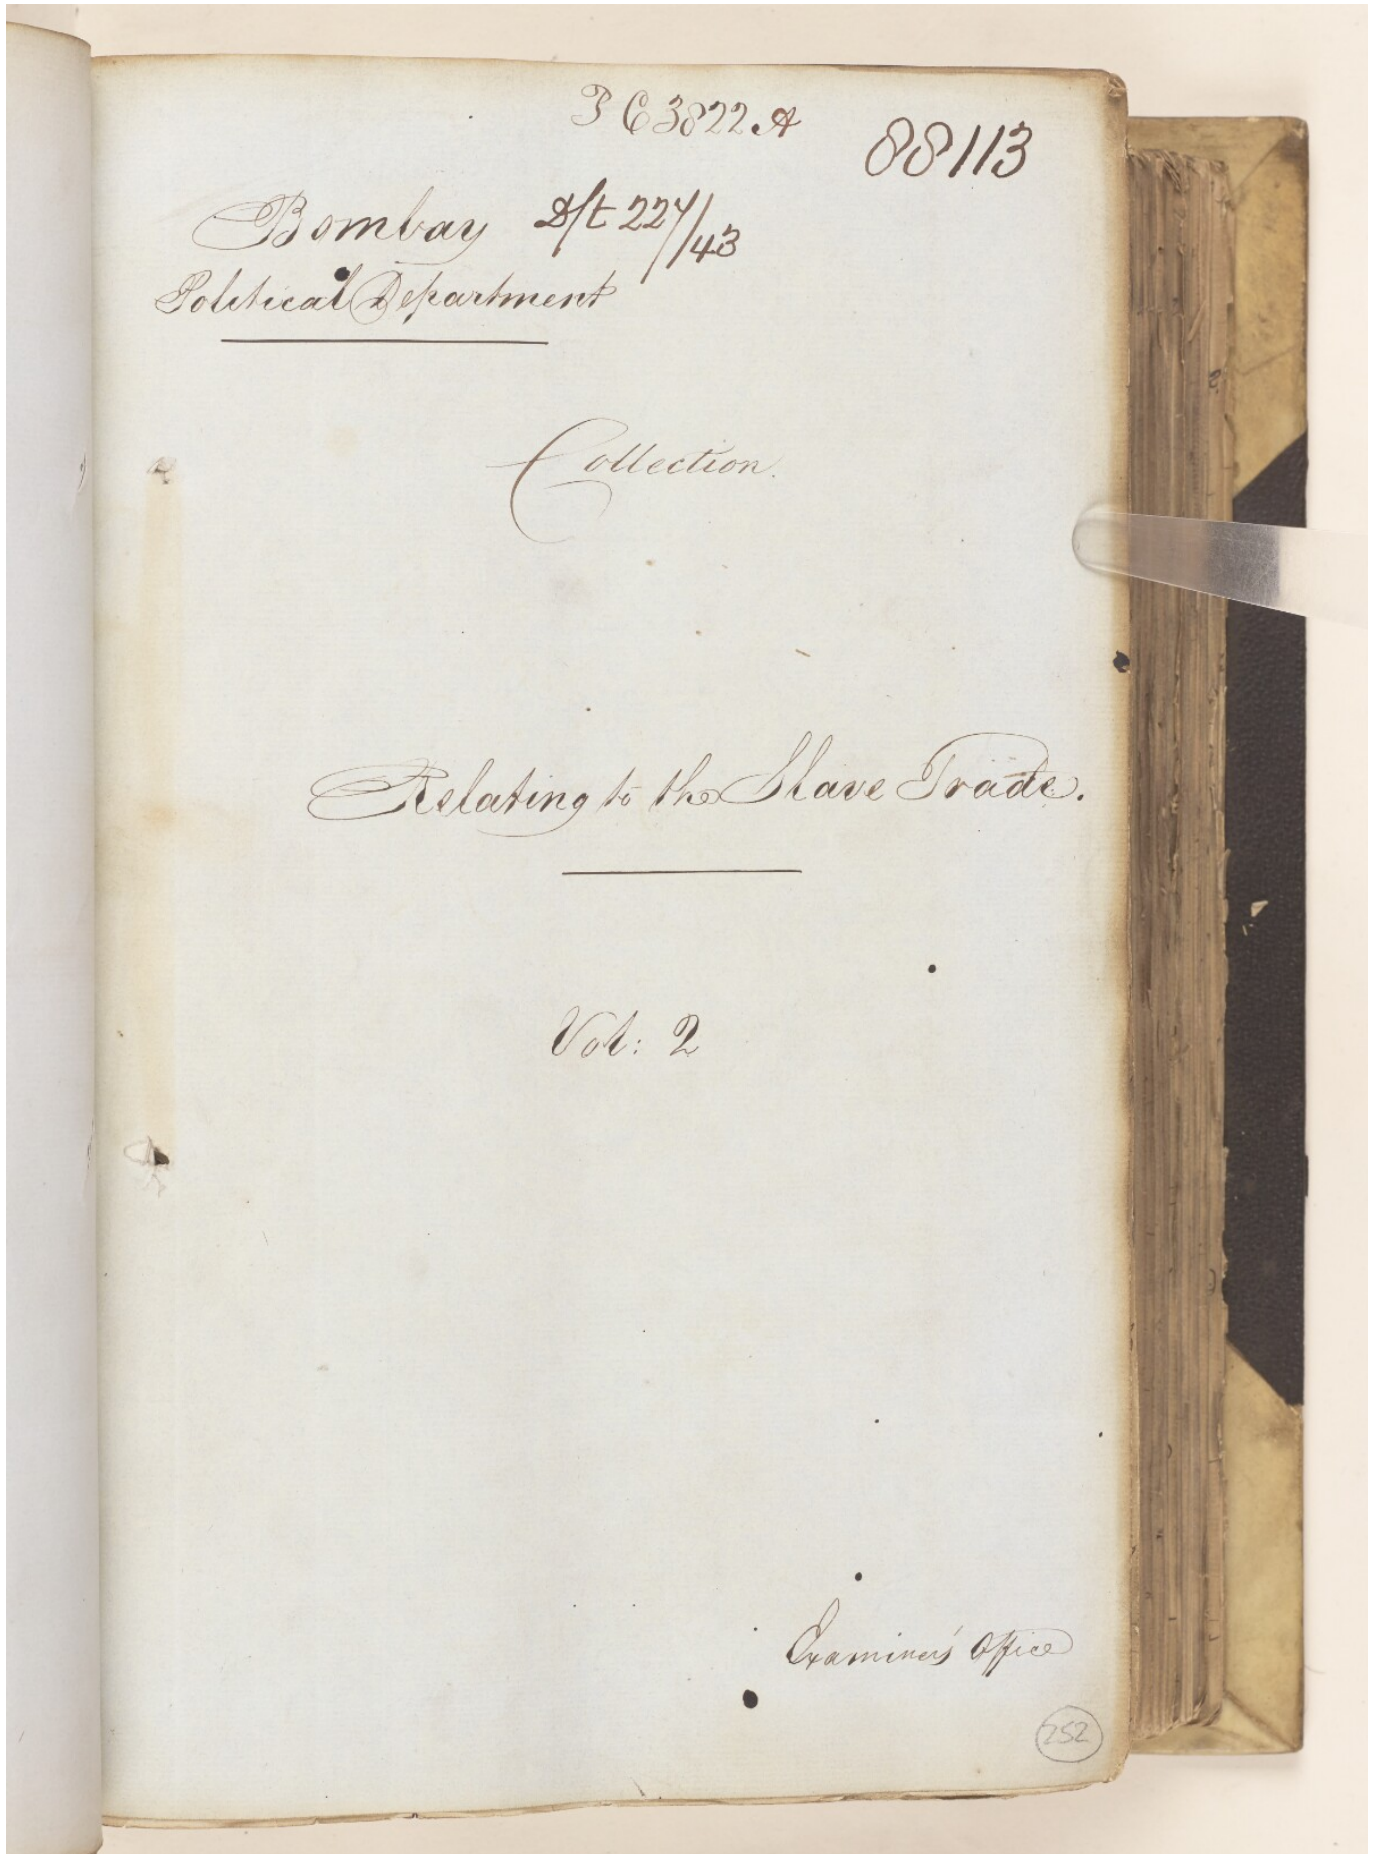 P C 3822 A
88113
Bombay Dft 227/43
Political Department
Collection.
Relating to the Slave Trade.
Vol: 2
Examiner's Office
252